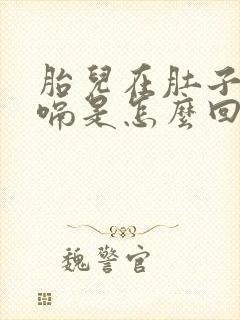 胎兒在肚子
嗝是怎麼回
魏警官